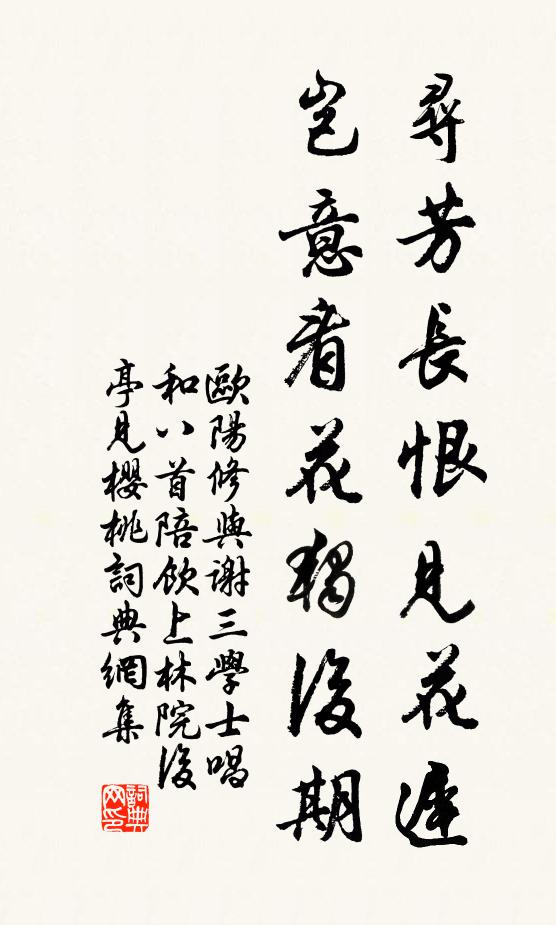 尋芳長恨見花遲
豈意看花獨後期
歐陽修與謝三學士唱
和八首陪飲上林院後
亭見櫻桃詞典網集
詞典
网印